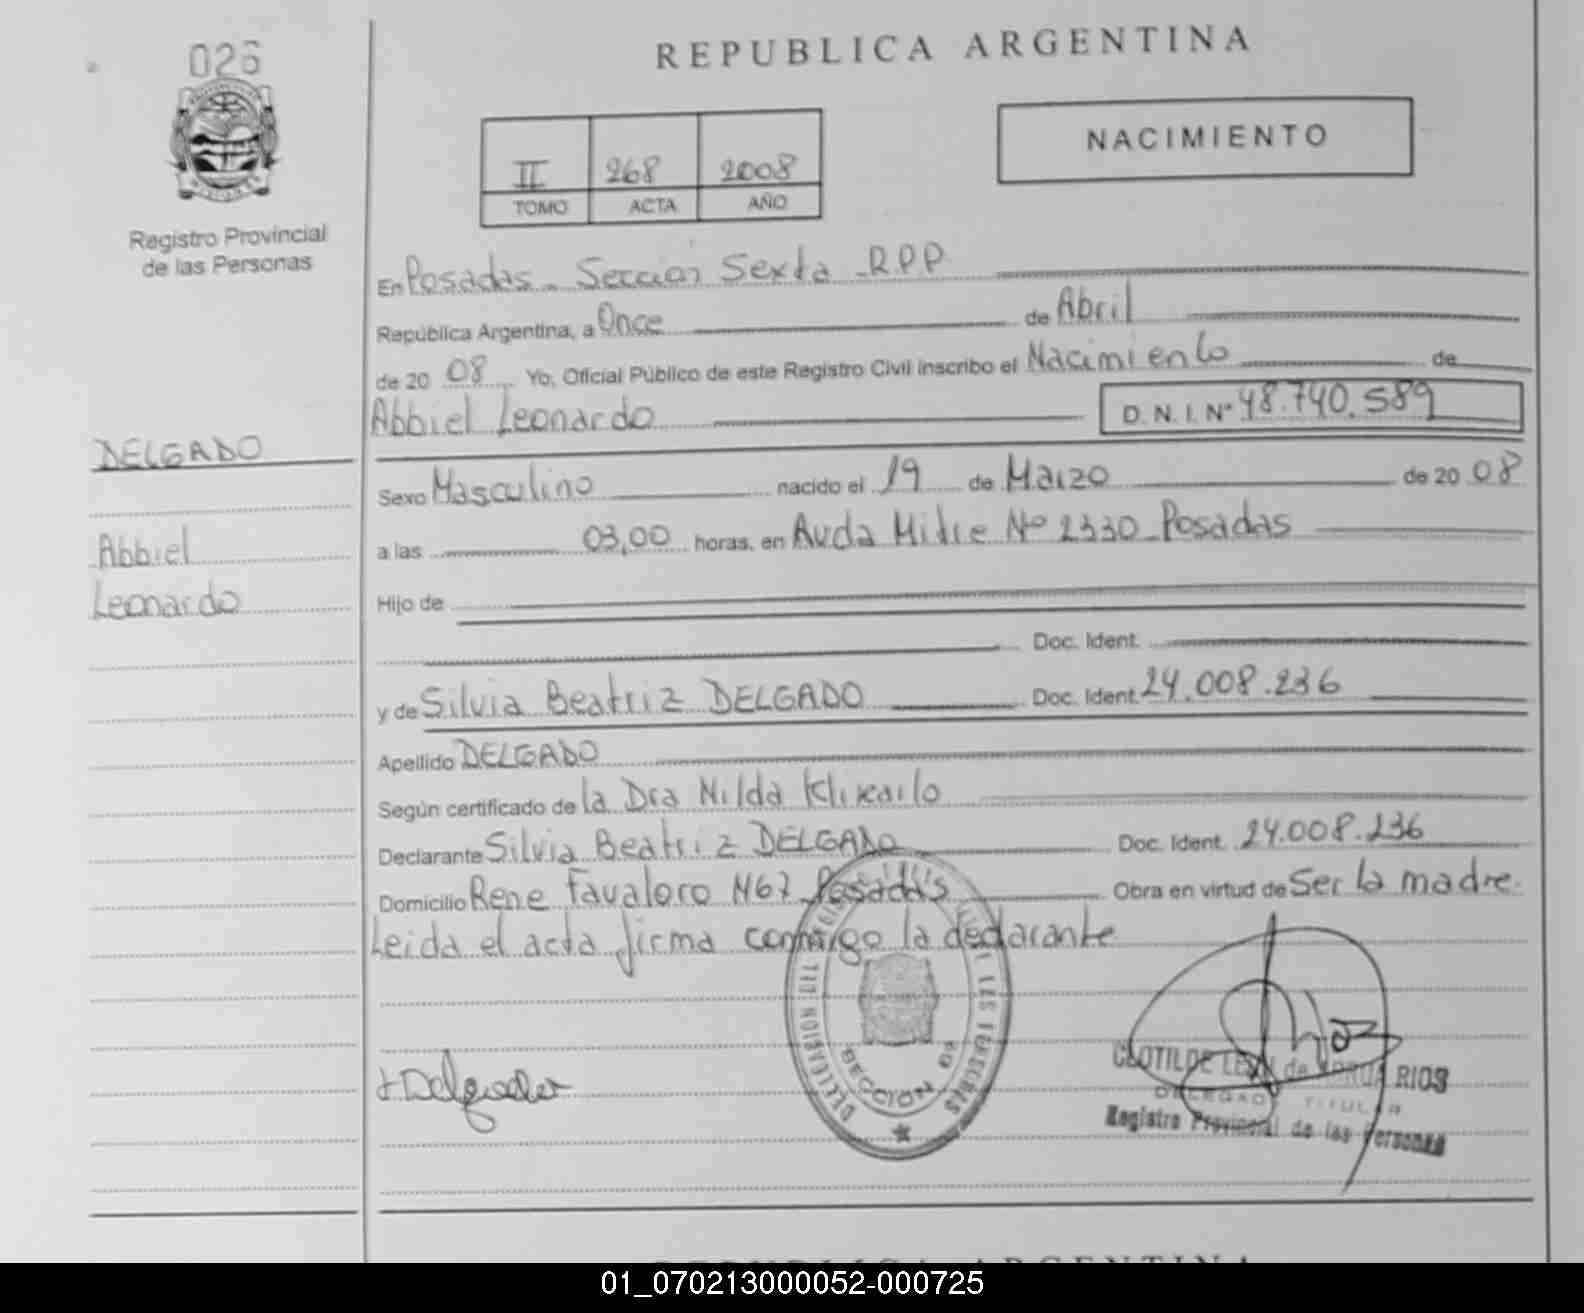 026
REPUBLICA ARGENTINA
II 268 2008
TOMO ACTA AÑO
NACIMIENTO
Registro Provincial
de las Personas
En Posadas - Sección Sexta RPP
República Argentina, a Once de Abril
de 20 08 Yo, Oficial Público de este Registro Civil inscribo el Nacimiento de
Abbiel Leonardo D. N. I. Nº 48.740.589
DELGADO
Abbiel
Leonardo
Sexo Masculino nacido el 19 de Marzo de 20 08
a las 03,00 horas, en Avda Mitre Nº 2330 Posadas
Hijo de
Doc. Ident.
y de Silvia Beatriz DELGADO Doc. Ident. 24.008.236
Apellido DELGADO
Según certificado de la Dra Nilda
Declarante Silvia Beatriz DELGADO Doc. Ident. 24.008.236
Domicilio Rene Favaloro Posadas Obra en virtud de Ser la madre.
Leida el acta firma conmigo la declarante
Delgado
SECCION
CLOTILDE de RIOS
DELEGADO TITULAR
Registro Provincial de las Personas
REPUBLICA ARGENTINA
01_070213000052-000725